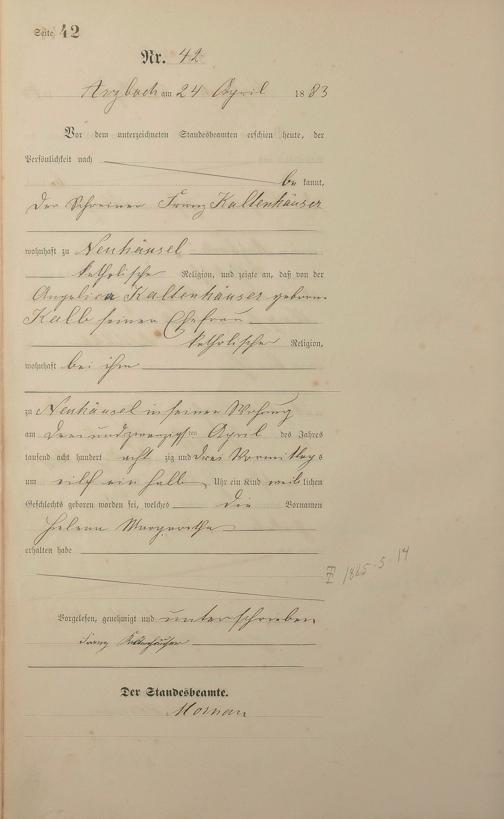 Seite 42
Nr. 42
Arzbach am 24 April 1883
Vor dem unterzeichneten Standesbeamten erschien heute, der
Persönlichkeit nach
be kannt,
der Schreiner Franz Kaltenhäuser
wohnhaft zu Neuhäusel
katholischer Religion, und zeigte an, daß von der
Angelica Kaltenhäuser geborne
Kalb seiner Ehefrau
katholischer Religion,
wohnhaft bei ihm
zu Neuhäusel in seiner Wohung
am dreiundzwanzigsten April des Jahres
tausend acht hundert acht zig und drei Vormittags
um eilf ein halb Uhr ein Kind weib lichen
Geschlechts geboren worden sei, welches die Vornamen
Helena Margaretha
erhalten habe
1865-5-14
Vorgelesen, genehmigt und unterschrieben
Franz Kaltenhäuser
Der Standesbeamte.